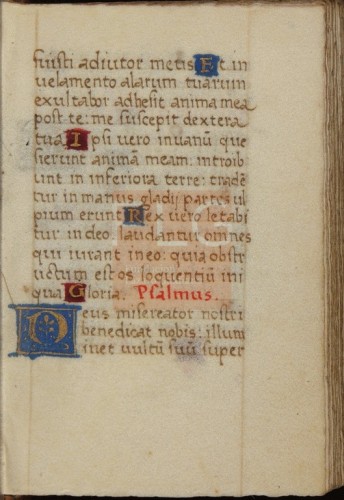 fuisti adiutor meus Et in
uelamento alarum tuarum
exultabor adhesit anima mea
post te: me suscepit dextera
tua Ipsi uero in uanũ que
sierunt animã meam: introib
unt in inferiora terre: tradẽ
tur in manus gladij partes ul
pium erunt Rex uero letabi
tur in deo: laudantur omnes
qui iurant in eo: quia obstr
uctum est os loquentiũ ini
qua Gloria. Psalmus.
Deus misereator nostri
benedicat nobis: illum
inet uultũ suũ super